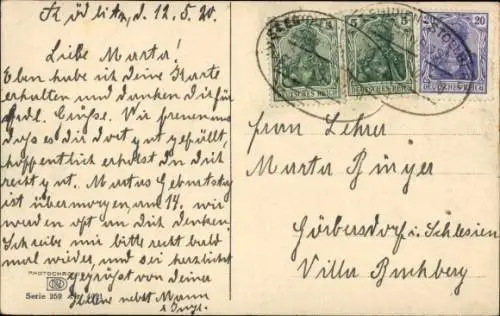 d. 12.5.20.
Liebe Marta!
Eben habe ich deine Karte
erhalten und danken dir für
frdl. Grüße. Wir freuen uns
daß es dir dort gut gefällt,
hoffentlich erholst du dich
recht gut. Martas Geburtstag
ist übermorgen, am 14. wir
werden oft an dich denken.
Schreibe mir bitte recht bald
mal wieder, und sei herzlichst
gegrüßt von deiner
nebst Mann
PHOTOCHROM
Serie 359
5
20
DEUTSCHES REICH
DEUTSCHES REICH
DEUTSCHES REICH
Frau Lehrer
Marta Binger
Görbersdorf i. Schlesien
Villa Buchberg